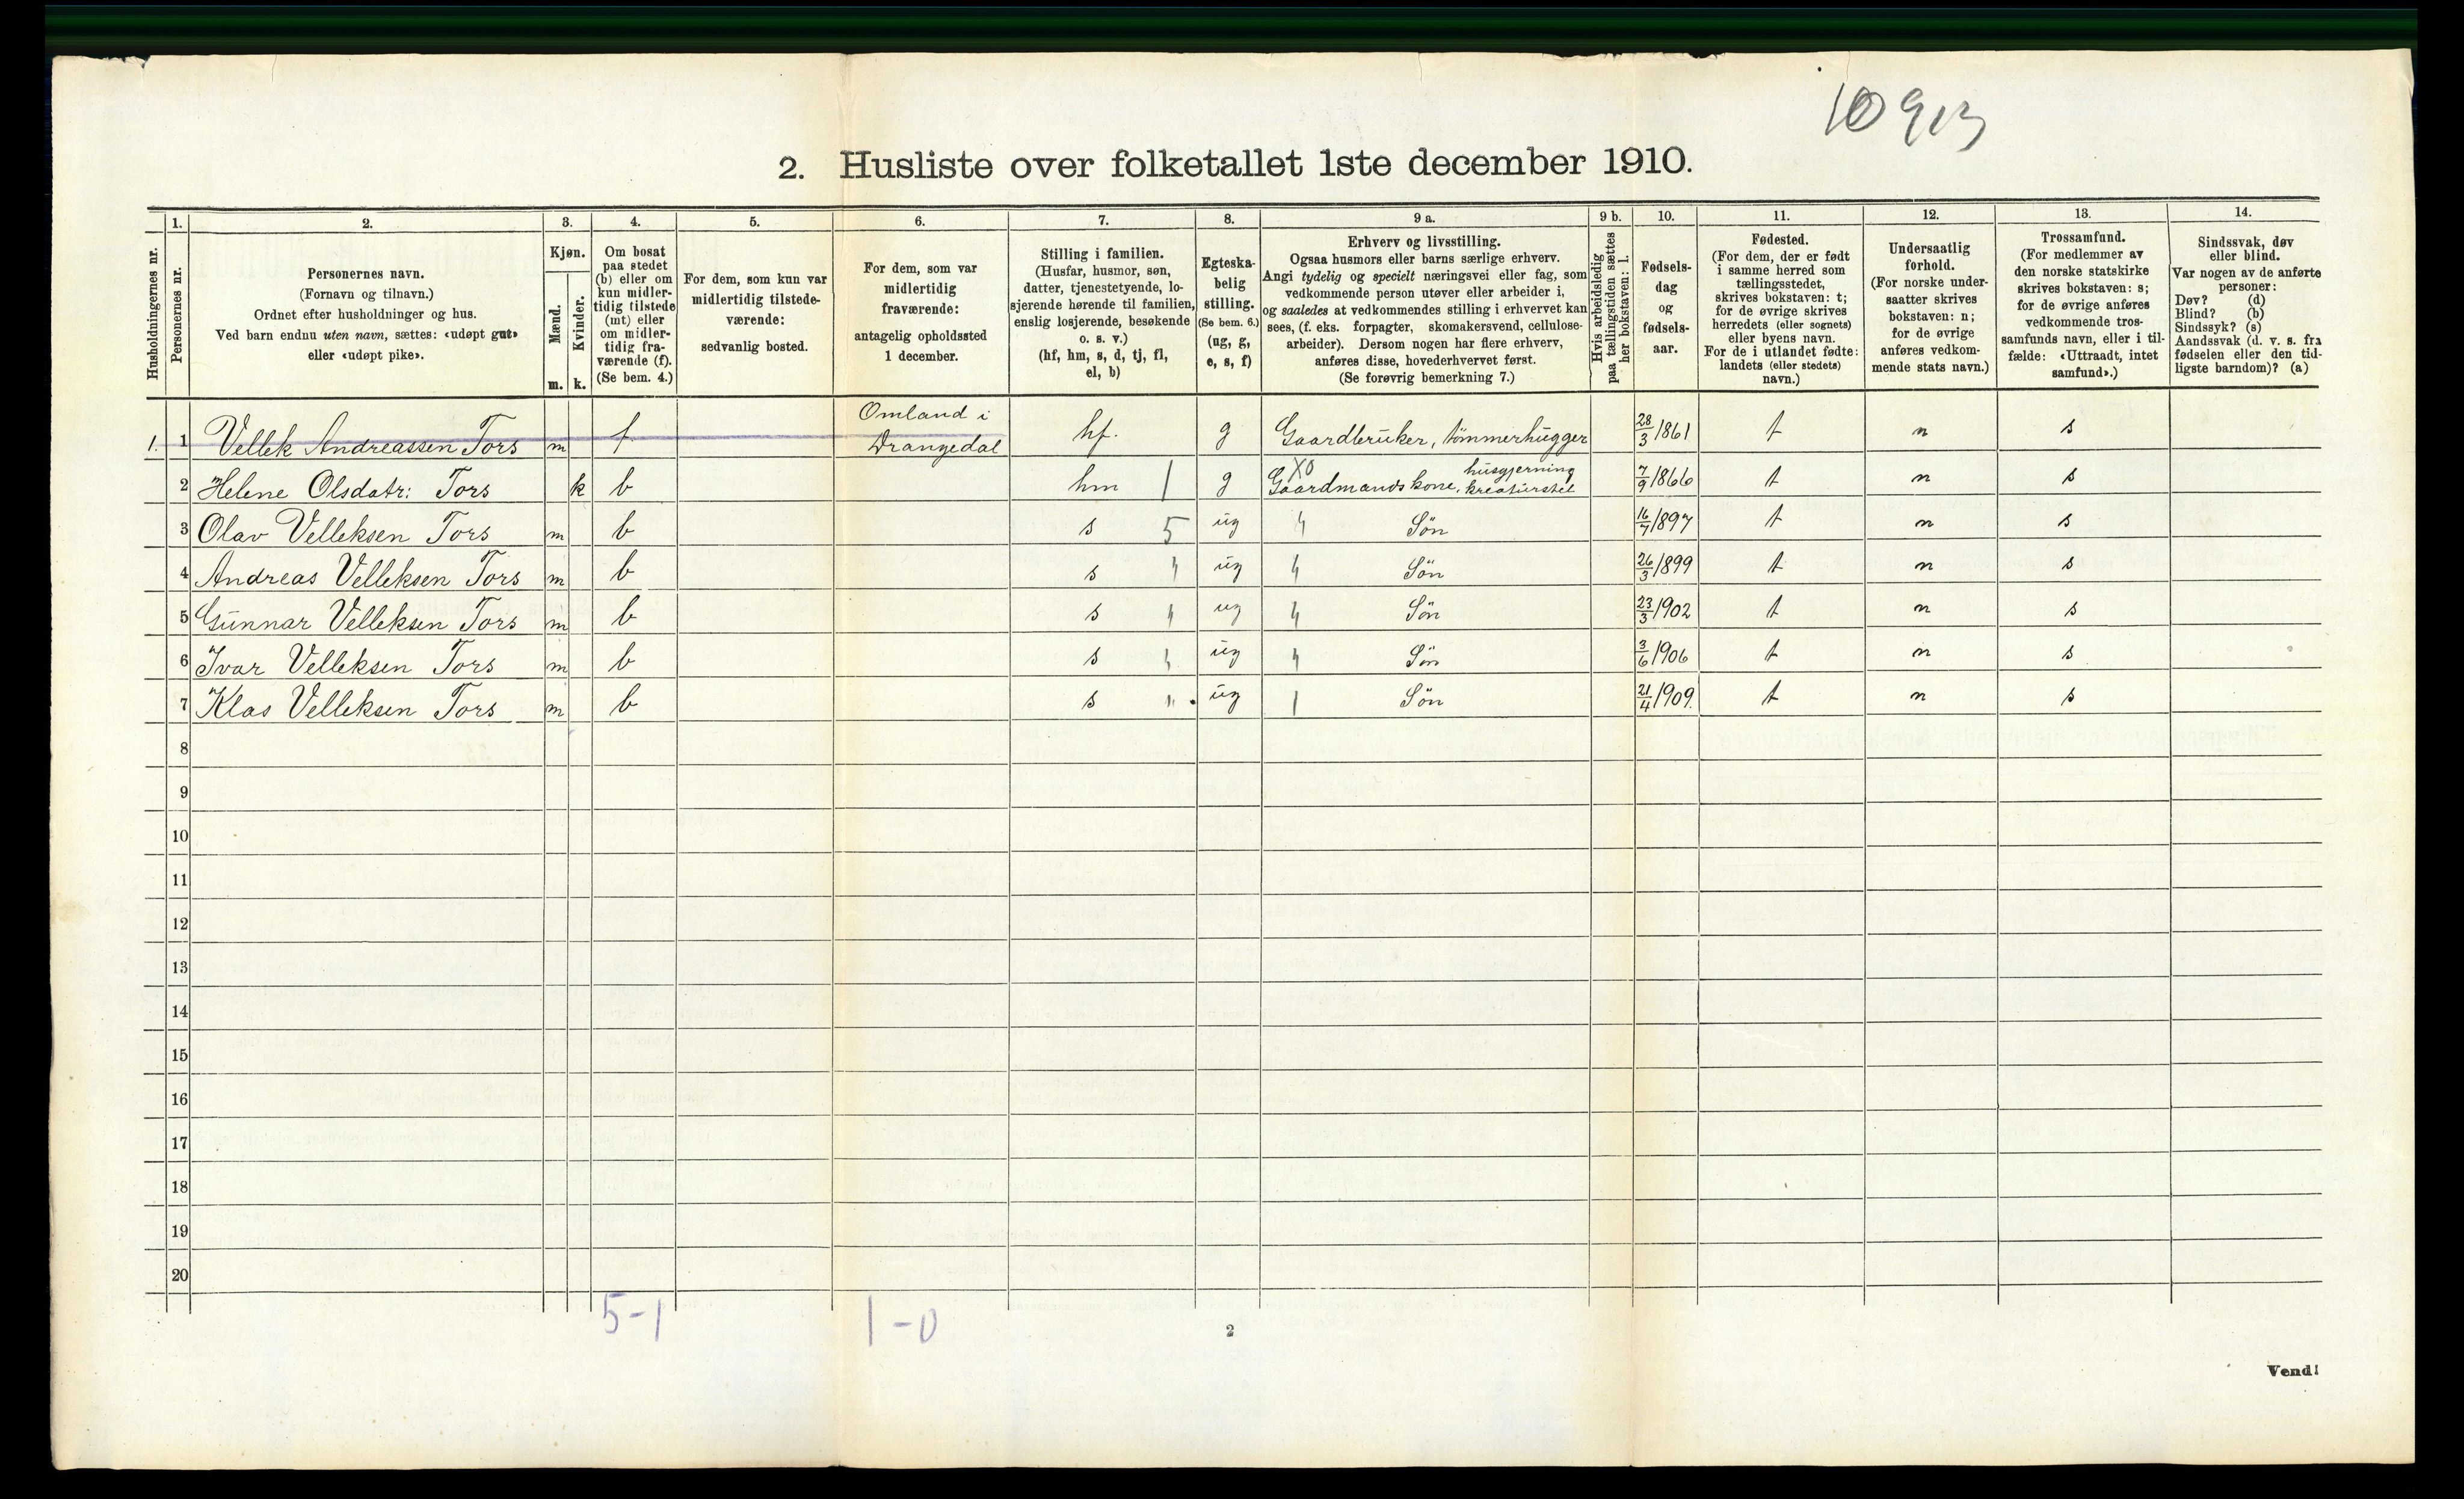 10913
2. Husliste over folketallet 1ste december 1910.
Husholdningernes nr.
1.
Personernes nr.
2.
Personernes navn.
(Fornavn og tilnavn.)
Ordnet efter husholdninger og hus.
Ved barn endnu uten navn, sættes: «udøpt gut»
eller «udøpt pike».
3.
Kjøn.
Mænd.
m.
Kvinder.
k.
4.
Om bosat
paa stedet
(b) eller om
kun midler-
tidig tilstede
(mt) eller
om midler-
tidig fra-
værende (f).
(Se bem. 4.)
5.
For dem, som kun var
midlertidig tilstede-
værende:
sedvanlig bosted.
6.
For dem, som var
midlertidig
fraværende:
antagelig opholdssted
1 december.
7.
Stilling i familien.
(Husfar, husmor, søn,
datter, tjenestetyende, lo-
sjerende hørende til familien,
enslig losjerende, besøkende
o. s. v.)
(hf, hm, s, d, tj, fl,
el, b)
8.
Egteska-
belig
stilling.
(Se bem. 6.)
(ug, g,
e, s, f)
9 a.
Erhverv og livsstilling.
Ogsaa husmors eller barns særlige erhverv.
Angi tydelig og specielt næringsvei eller fag, som
vedkommende person utøver eller arbeider i,
og saaledes at vedkommendes stilling i erhvervet kan
sees, (f. eks. forpagter, skomakersvend, cellulose-
arbeider). Dersom nogen har flere erhverv,
anføres disse, hovederhvervet først.
(Se forøvrig bemerkning 7.)
9 b.
Hvis arbeidsledig
paa tællingstiden sættes
her bokstaven: l.
10.
Fødsels-
dag
og
fødsels-
aar.
11.
Fødested.
(For dem, der er født
i samme herred som
tællingsstedet,
skrives bokstaven: t;
for de øvrige skrives
herredets (eller sognets)
eller byens navn.
For de i utlandet fødte:
landets (eller stedets)
navn.)
12.
Undersaatlig
forhold.
(For norske under-
saatter skrives
bokstaven: n;
for de øvrige
anføres vedkom-
mende stats navn.)
13.
Trossamfund.
(For medlemmer av
den norske statskirke
skrives bokstaven: s;
for de øvrige anføres
vedkommende tros-
samfunds navn, eller i til-
fælde: «Uttraadt, intet
samfund».)
14.
Sindssvak, døv
eller blind.
Var nogen av de anførte
personer:
Døv? (d)
Blind? (b)
Sindssyk? (s)
Aandssvak (d. v. s. fra
fødselen eller den tid-
ligste barndom)? (a)
1. 1 Vellek Andreassen Tors m f. Omland i Drangedal hf. g Gaardbruker, tømmerhugger 28/3 1861 t n s
2 Helene Olsdatr: Tors k b hm 1 g X0 Gaardmandskone, husgjerning kreaturstel 7/9 1866 t n s
3 Olav Velleksen Tors m b s 5 ug " Søn 16/7 1897 t n s
4 Andreas Velleksen Tors m b s " ug " Søn 26/3 1899 t n s
5 Gunnar Velleksen Tors m b s " ug " Søn 23/3 1902 t n s
6 Ivar Velleksen Tors m b s " ug " Søn 3/6 1906 t n s
7 Klas Velleksen Tors m b s " ug Søn 21/4 1909. t n s
8
9
10
11
12
13
14
15
16
17
18
19
20
5-1
1-0
2
Vend!